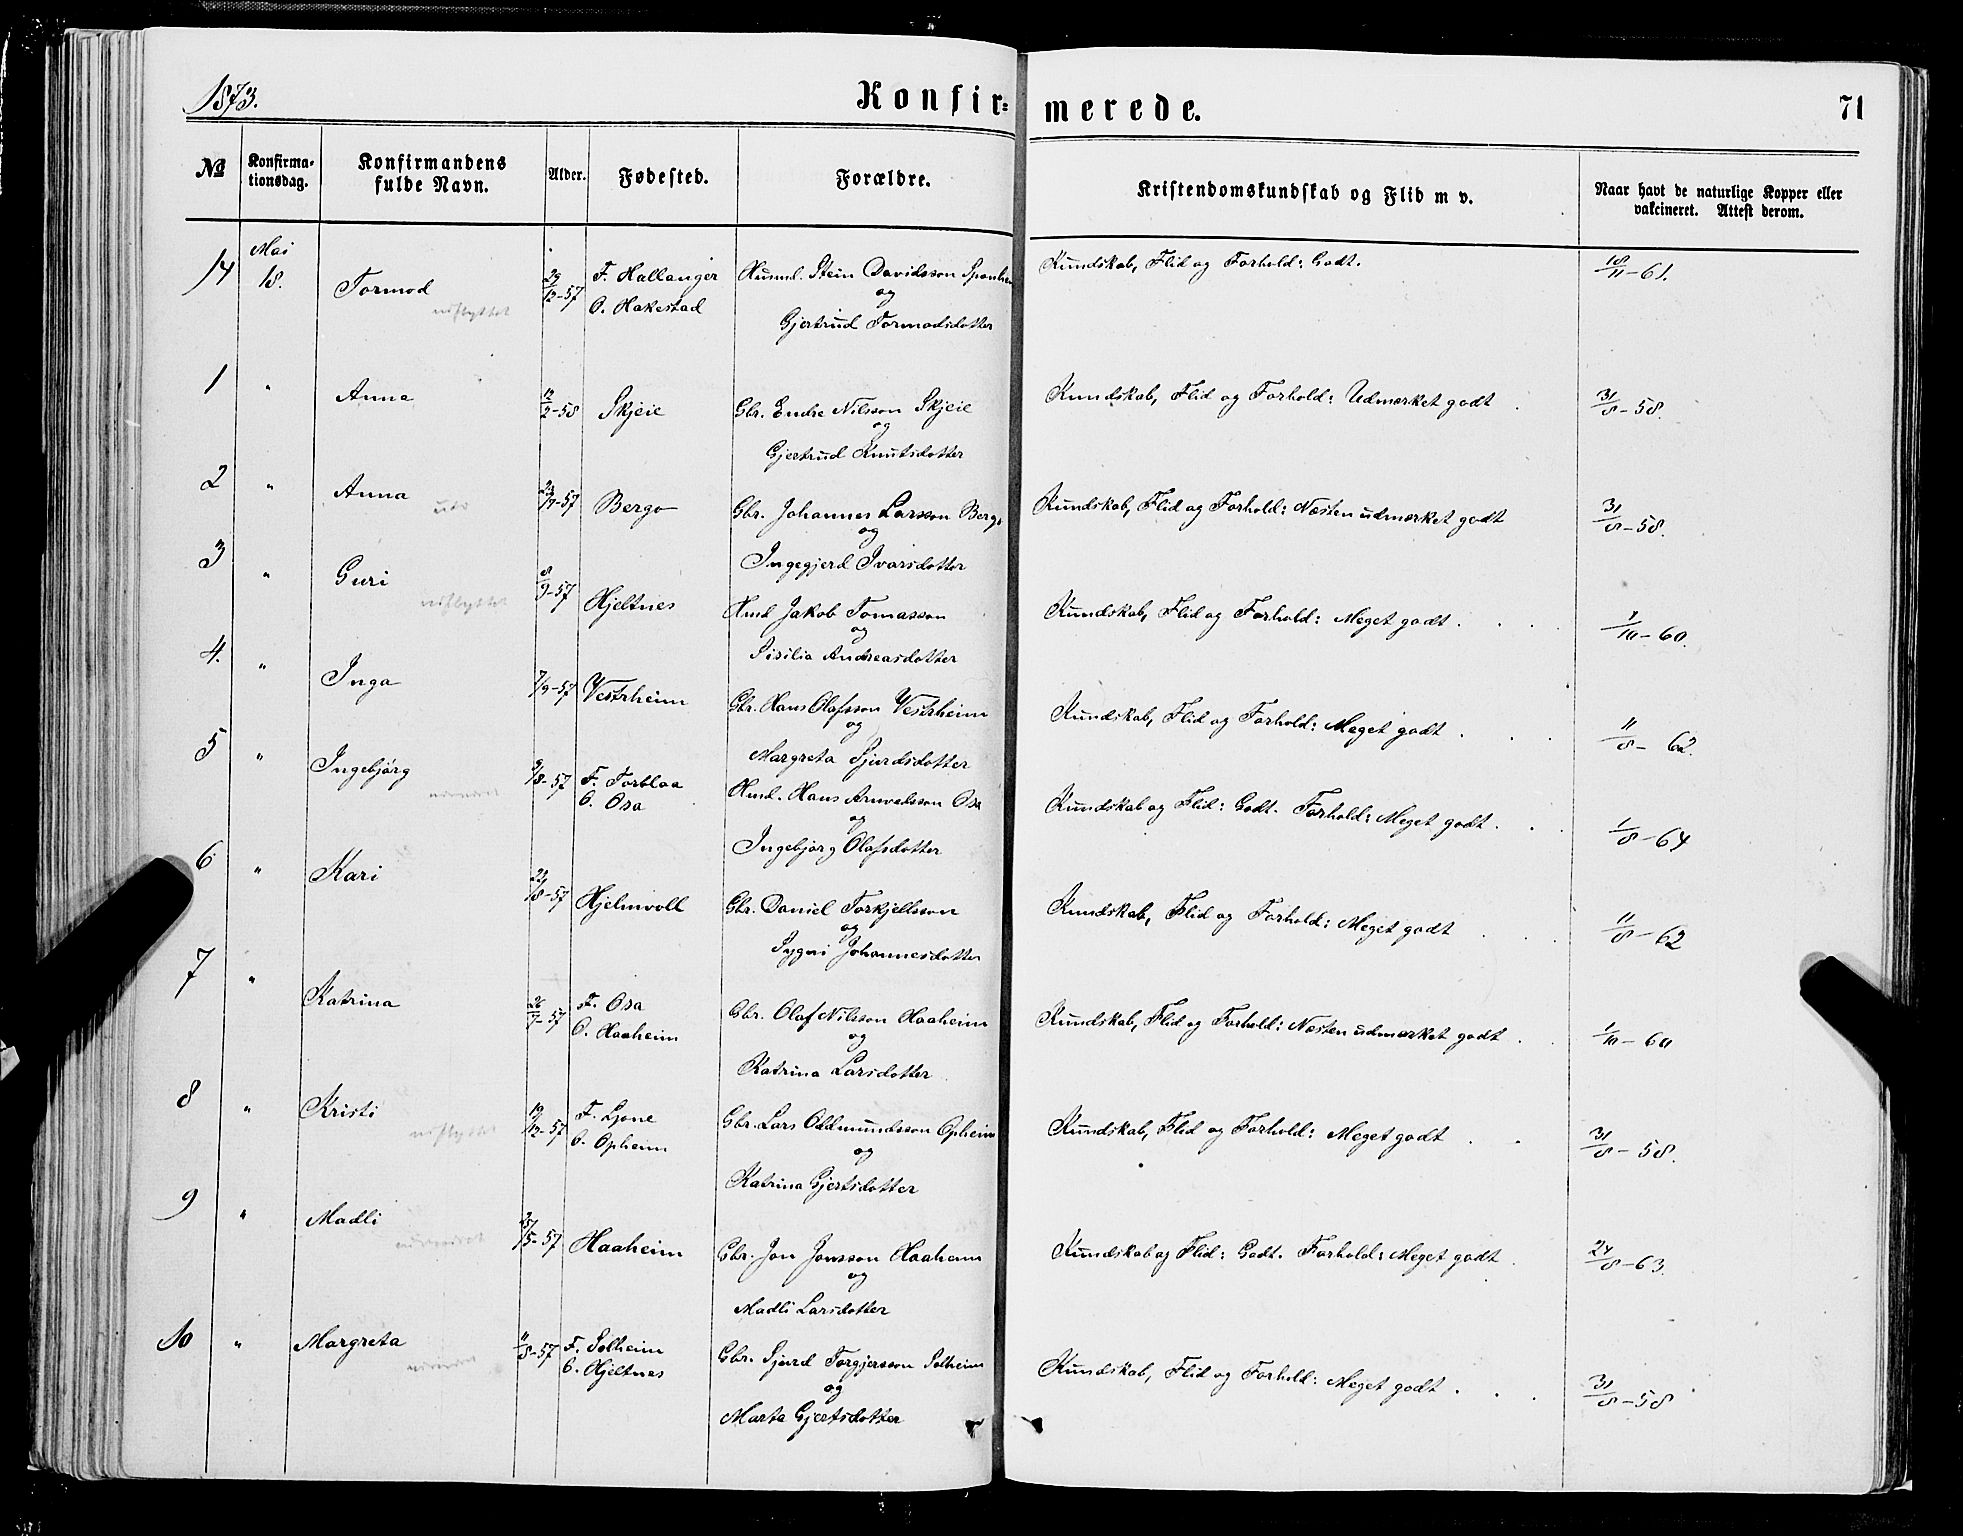 1873.
Konfirmerede.
71
№ Konfirmationsdag. Konfirmandens fulde Navn. Alder. Fødested. Forældre. Kristendomskundskab og Flid m v. Naar havt de naturlige Kopper eller vakcineret. Attest derom.
Mai
14 18. Tormod 29/12-57 F. Hallanger Huusml. Stein Davidsson Kundskab, Flid og Forhold: Godt. 18/11-61.
udflyttet O. Hakestad og
Gjertrud Tormodsdotter
1 " Anna 12/2-58 Skjeie Gbr. Endre Nilsson Skjeie Kundskab, Flid og Forhold: Udmærket godt 31/8-58.
og
Gjertrud Knutsdotter
2 " Anna Bergo Gbr. Johannes Larsson Bergo Kundskab, Flid og Forhold: Næsten udmærket godt 31/8-58.
og
Ingegjerd Ivarsdotter
3 " Guri 8/9-57 Hjeltnes Husml Jakob Tomasson Kundskab, Flid og Forhold: Meget godt. 1/10-60.
udflyttet og
Sisilia Andreasdotter
4. " Inga 7/9-57 Vestrheim Gbr. Hans Olafsson Vestrheim Kundskab, Flid og Forhold: Meget godt. 11/8-62.
og
Margreta Sjurdsdotter
5 " Ingebjörg 9/8-57 F. Torblaa Husml. Hans Arnvedsson Osa Kundskab og Flid: Godt. Forhold: Meget godt. 1/8-64
O. Osa
og
Ingebjörg Olafsdotter
6 " Kari 22/8-57 Hjelmvoll Gbr. Daniel Torkjellsson Kundskab, Flid og Forhold: Meget godt 11/8-62
og
Sygni Johannesdotter
7 " Katrina 26/7-57 F. Osa Gbr. Olaf Nilsson Haaheim Kundskab, Flid og Forhold: Næsten udmærket godt. 1/10-60
O. Haaheim
og
Katrina Larsdotter
8 " Kristi 19/12-57 F. Ljone Gbr. Lars Oddmundsson Opheim Kundskab, Flid og Forhold: Meget godt. 31/8-58.
udflyttet O. Opheim
og
Katrina Gjertsdotter
9 " Madli 25/5-57 Haaheim Gbr. Jon Jonsson Haaheim Kundskab og Flid: Godt. Forhold: Meget godt. 24/8-63.
og
Madli Larsdotter
10 " Margreta 11/8-57 F. Solheim Gbr. Sjurd Torgjersson Solheim Kundskab, Flid og Forhold: Meget godt. 31/8-58
O. Hjeltnes
og
Marta Gjertsdotter